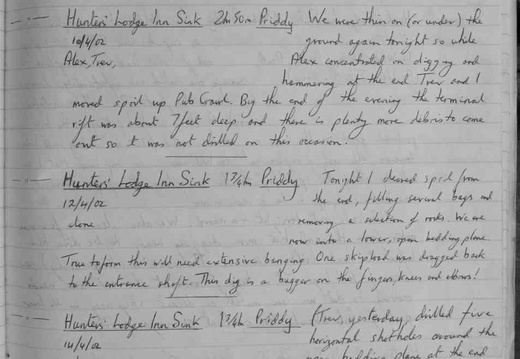 Hunters' Lodge Inn Sink 2h 50m Priddy We were thin on (or under) the
10/4/02 ground again tonight so while
Alex, Trev, Alex concentrated on digging and
hammering at the end Trev and I
moved spoil up Pub Crawl. By the end of the evening the terminal
rift was about 7 feet deep and there is plenty more debris to come
out so it was not drilled on this occasion.
Hunters' Lodge Inn Sink 1¾h Priddy Tonight I cleared spoil from
12/4/02 the end, filling several bags and
alone removing a selection of rocks. We are
now into a lower, open bedding plane.
True to form this will need extensive banging. One skipload was dragged back
to the entrance shaft. This dig is a bugger on the fingers, knees and elbows!
Hunters' Lodge Inn Sink 1¾h Priddy (Trev, yesterday, drilled five
14/4/02 horizontal shotholes around the
bedding plane at the end